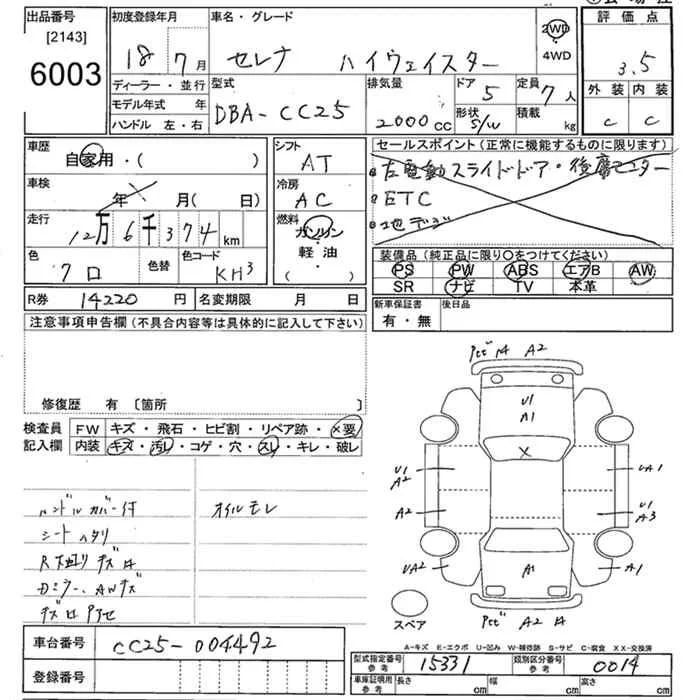 出品番号
[2143]
6003
初度登録年月
18年 7月
車名・グレード
セレナ ハイウェイスター
2WD
4WD
評価点
3.5
外装 内装
C C
ディーラー・並行
モデル年式 年
ハンドル 左・右
型式
DBA-CC25
排気量
2000cc
ドア
5
形状
S/W
定員
7人
積載
kg
車歴
自家用・( )
車検
年 月( 日)
走行
12万6千374km
色
クロ
色替
色コード
KH3
シフト
AT
冷房
AC
燃料
ガソリン
軽油
( )
セールスポイント(正常に機能するものに限ります)
左電動スライドドア・後席モニター
ETC
地デジ
装備品(純正品に限り○をつけてください)
PS PW ABS エアB AW
SR ナビ TV 本革
R券 14220円 名変期限 月 日
新車保証書
有・無
後日品
注意事項申告欄(不具合内容等は具体的に記入して下さい)
修復歴 有 〔箇所
検査員
記入欄
FW キズ・飛石・ヒビ割・リペア跡・×要
内装 キズ・汚レ・コゲ・穴・スレ・キレ・破レ
ハンドルカバー付
シートヘタリ
オイルモレ
A2
U1
A1
X
U1
A2
UA1
A2
U1
A3
UA2
A1
A1
A2
スペア
A-キズ E-エクボ U-凹み W-補修跡 S-サビ C-腐食 XX-交換済
車台番号 CC25-004492
登録番号
型式指定番号
参考
15331
類別区分番号
参考
0014
車庫証明用
参考
長さ cm 幅 cm 高さ cm